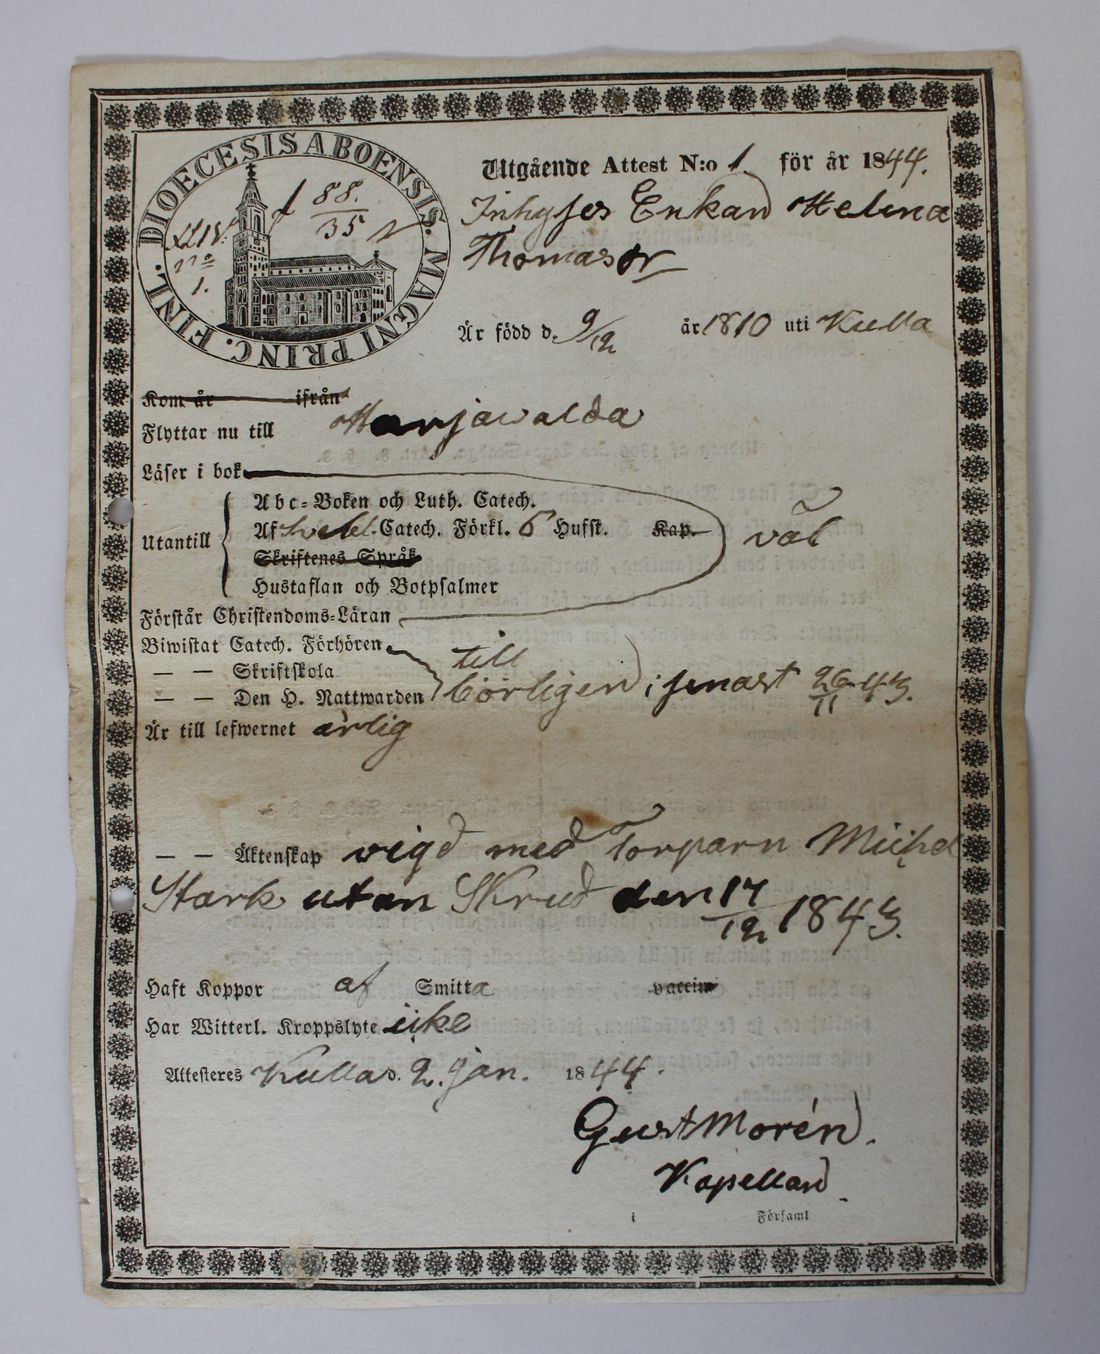 DIOECESIS ABOENSIS. MAGNI PRINC. FINL.
f 88.
35
no
1.
Utgående Attest N:o 1. för år 1844.
Inhyses Enkan Helena
Thomasdr
Är född d. 9/12 år 1810 uti Kulla
Kom år ifrån
Flyttar nu till Harjawalda
Läser i bok
Abc-Boken och Luth. Catech.
Utantill Af Catech. Förkl. 6 Hufst. Kap. väl
Skriftenes Språk
Hustaflan och Botpsalmer
Förstår Christendoms-Läran
Biwistat Catech. Förhören till
— — Skriftskola
— — Den H. Nattwarden börligen; senast 26/11 43.
Är till lefwernet ärlig
— — Äktenskap vigd med Torparn Michel
Stark utan Skrud den 17/12 1843.
Haft Koppor af Smitta vaccin
Har Witterl. Kroppslyte icke
Attesteres Kulla d. 2. Jan. 1844.
Gust Morén.
Kapellan.
i Församl